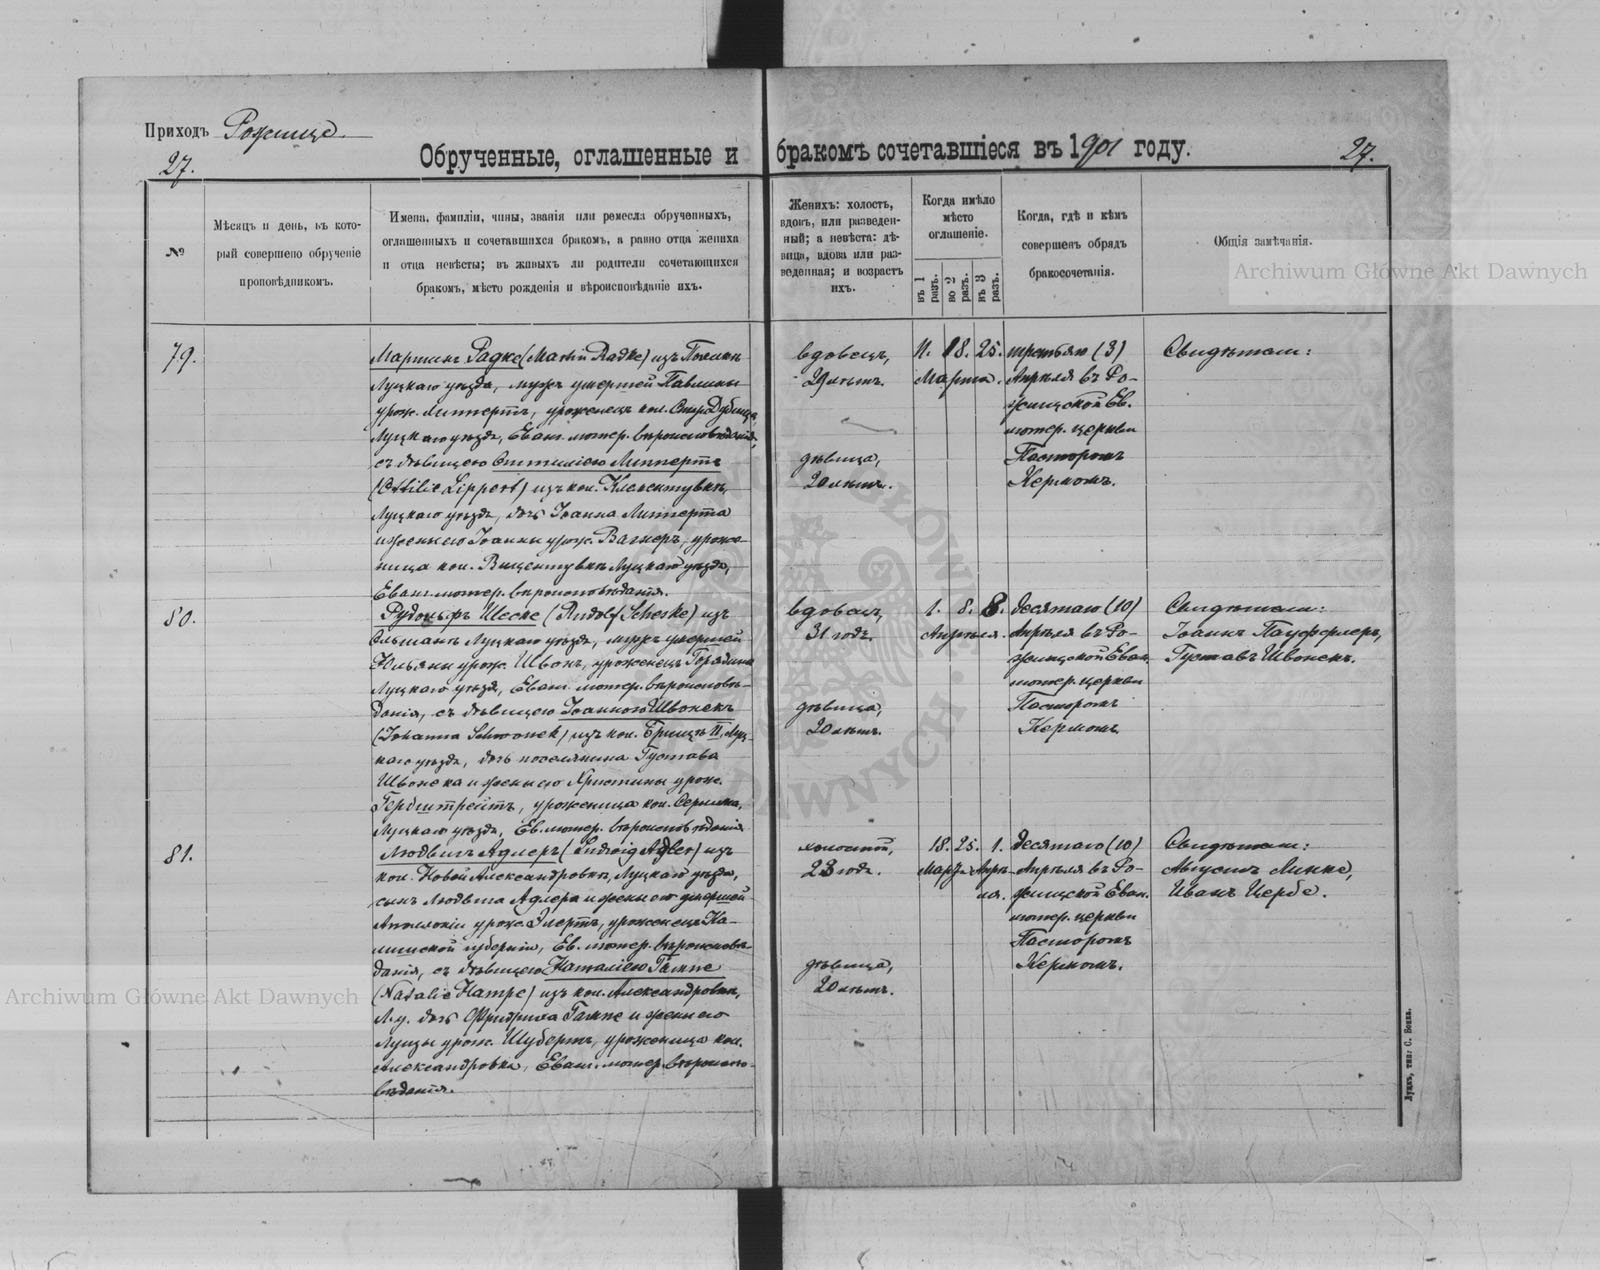 Приходъ Рожище
27.
Обрученные, оглашенные и бракомъ сочетавшіеся въ 1901 году.
27.
№
Мѣсяцъ и день, въ кото-
рый совершено обрученіе
проповѣдникомъ.
Имена, фамиліи, чины, званія или ремесла обрученныхъ,
оглашенныхъ и сочетавшихся бракомъ, а равно отца жениха
и отца невѣсты; въ живыхъ ли родители сочетающихся
бракомъ, мѣсто рожденія и вѣроисповѣданіе ихъ.
Женихъ: холостъ,
вдовъ, или разведен-
ный; а невѣста: дѣ-
вица, вдова или раз-
веденная; и возрастъ
ихъ.
Когда имѣло
мѣсто
оглашеніе.
въ 1 разъ.
во 2 разъ.
въ 3 разъ.
Когда, гдѣ и кѣмъ
совершенъ обрядъ
бракосочетанія.
Общія замѣчанія.
Archiwum Główne Akt Dawnych
79.
Мартинъ Радке (Martin Radke) изъ
Луцкаго уѣзда, мужъ умершей Павлины
урож. Липпертъ, уроженецъ кол.
Луцкаго уѣзда, Еванг. лютер. вѣроисповѣданія,
съ дѣвицею Оттиліею Липпертъ
(Ottilie Lippert) изъ кол. Клементувки,
Луцкаго уѣзда, дочь Іоанна Липперта
и жены его Іоанны урож. Вагнеръ, уроже-
ница кол. Вицентувки Луцкаго уѣзда,
Еванг. лютер. вѣроисповѣданія.
вдовецъ,
29 лѣтъ.
дѣвица,
20 лѣтъ.
11. 18. 25.
Марта.
третьяго (3)
Апрѣля въ Ро-
жищской Ев.
лютер. церкви
Пасторомъ
Кермомъ.
Свидѣтели:
80.
Рудольфъ Шеске (Rudolf Scheske) изъ
Луцкаго уѣзда, мужъ умершей
Юльяны урож. уроженецъ
Луцкаго уѣзда, Еванг. лютер. вѣроисповѣ-
данія, съ дѣвицею Іоанною Швонекъ
(Johanna Schwonek) изъ кол. II, Луц-
каго уѣзда, дочь поселянина Густава
Швонека и жены его Христины урож.
уроженица кол.
Луцкаго уѣзда, Ев. лютер. вѣроисповѣданія
вдовецъ,
31 годъ.
дѣвица,
20 лѣтъ.
1. 8. 8.
Апрѣля.
десятаго (10)
Апрѣля въ Ро-
жищской Еван.
лютер. церкви
Пасторомъ
Кермомъ
Свидѣтели:
Іоаннъ
Густавъ Швонекъ.
81.
Людвигъ Адлеръ (Ludwig Adler) изъ
кол. Новой Александровки, Луцкаго уѣзда,
сынъ Людвига Адлера и жены его умершей
урож. уроженецъ Ка-
лишской губерніи, Ев. лютер. вѣроисповѣ-
данія, съ дѣвицею Наталіею Гампе
(Natalie Hampe) изъ кол. Александровки,
Л. у. дочь Фридриха Гампе и жены его
Луизы урож. Шубертъ, уроженица кол.
Александровка, Еванг. лютер. вѣроиспо-
вѣданія.
холостой,
23 годъ.
дѣвица,
20 лѣтъ.
18. 25. 1.
Марта Апрѣ-
ля.
десятаго (10)
Апрѣля въ Ро-
жищской Еван.
лютер. церкви
Пасторомъ
Кермомъ.
Свидѣтели:
Августъ Линке,
Иванъ Цербе.
Archiwum Główne Akt Dawnych
Луцкъ, тип. С. Бокка.